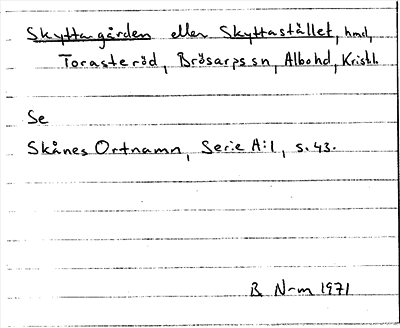 Skyttagården eller Skyttastället, hmd,
Torasteröd, Brösarps sn, Albo hd, Kristl.
Se
Skånes Ortnamn, Serie A:1, s. 43.
B N-m 1971